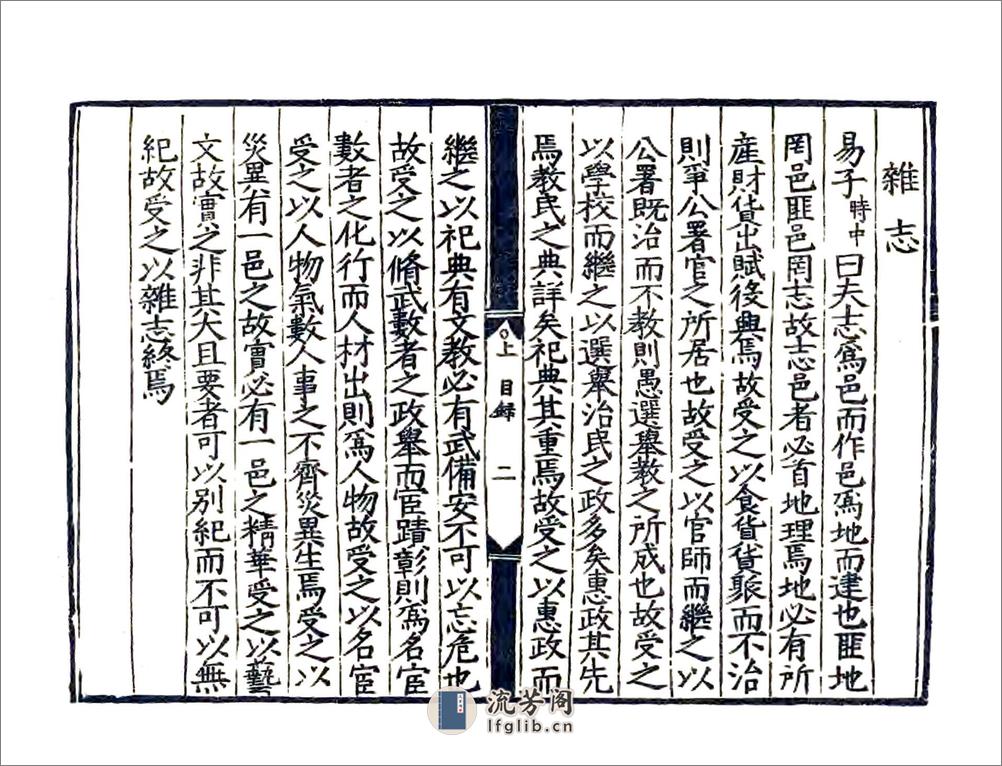 雜志
易子時中曰夫志爲邑而作邑爲地而建也匪地
罔邑匪邑罔志故志邑者必首地理焉地必有所
産財貨出賦後興焉故受之以食貨貨聚而不治
則爭公署官之所居也故受之以官師而繼之以
公署既治而不教則愚選舉教之所成也故受之
以學校而繼之以選舉治民之政多矣惠政其先
焉教民之典詳矣祀典其重焉故受之以惠政而
上 目録 二
繼之以祀典有文教必有武備安不可以忘危也
故受之以脩武數者之政舉而宦蹟彰則爲名宦
數者之化行而人材出則爲人物故受之以名宦
受之以人物氣數人事之不齊災異生焉受之以
災異有一邑之故實必有一邑之精華受之以藝
文故實之非其大且要者可以别紀而不可以無
紀故受之以雜志終焉
流芳阁
lfglib.cn